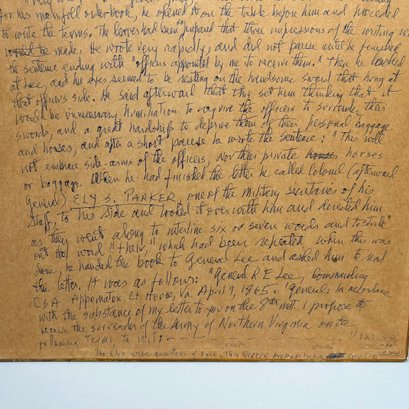 for his manifold orderbook, he opened it on the table before him and proceeded
to write the terms. The leaves had been prepared that three impressions of the writing
would be made. He wrote very rapidly and did not pause until he finished
the sentence ending with "officers appointed by me to receive them." Then he looked
at Lee, and his eyes seemed to be resting on the handsome sword that hung at
that officer's side. He said afterward that this set him thinking that it
would be unnecessary humiliation to require the officers to surrender their
swords, and a great hardship to deprive them of their personal baggage
and horses, and after a short pause he wrote the sentence: "This will
not embrace side arms of the officers, Nor their private horses
or baggage. When he had finished the letter he called Colonel (afterward
General) ELY S. PARKER, one of the military secretaries of his
staff, to his side and looked it over with him and directed him
as they went along to interline six or seven words and to strike
out the word "their" which had been repeated. When this was
done he handed the book to General Lee and asked him to read
the letter. It was as follows: "General R E Lee, Commanding
CSA Appomatox Ct. House, Va. April 9, 1865. "General: In accordance
with the substance of my letter to you on the 8th inst. I propose to
receive the surrender of the Army of Northern Virginia on the
following Terms to wit: